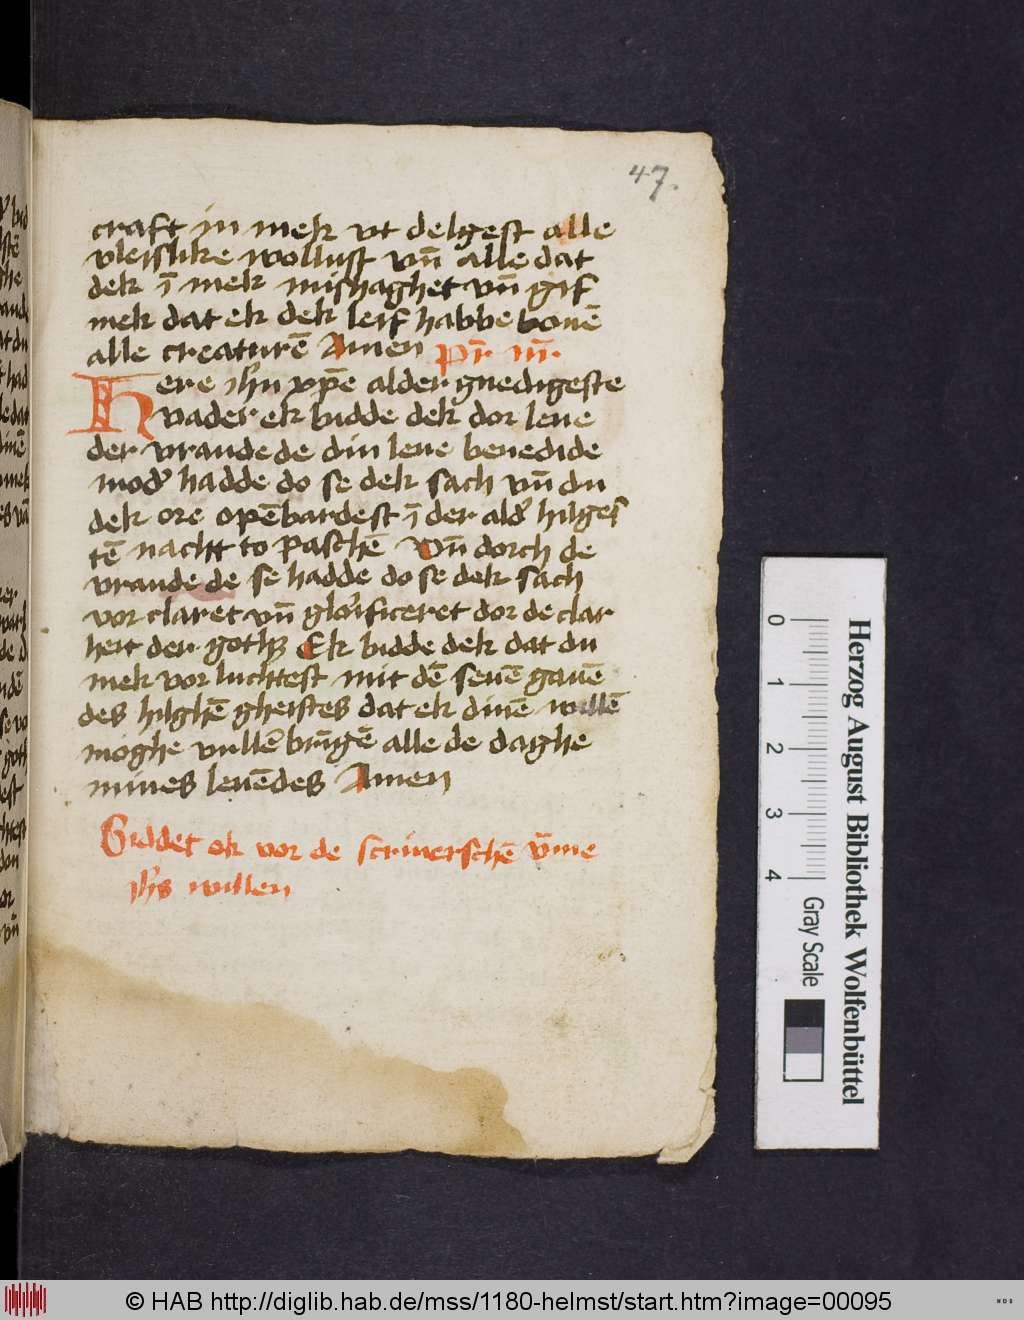 47.
craft in mek vt delgest alle
vleislike wollust vn̄ alle dat
dek ī mek mishaghet vn̄ gif
mek dat ek dek leif habbe bouē
alle creaturē Amen pr̄ nr̄
Here ih̄u xp̄e alder gnedigeste
vader ek bidde dek dor leue
der vraude de din leue benedide
mod' hadde do se dek sach vn̄ du
dek ore opēbardest ī der ald' hilges
tē nacht to paschē Vn̄ dorch de
vraude de se hadde do se dek sach
vor claret vn̄ glorificeret dor de clar
heit der goth Ek bidde dek dat du
mek vor luchtest mit dē seuē gauē
des hilghē gheistes dat ek dinē willē
moghe vullēbringē alle de daghe
mines leuēdes Amen
Biddet ok vor de scriuerschē v̄me
ih̄s willen
Herzog August Bibliothek Wolfenbüttel
0 1 2 3 4
Gray Scale
© HAB http://diglib.hab.de/mss/1180-helmst/start.htm?image=00095